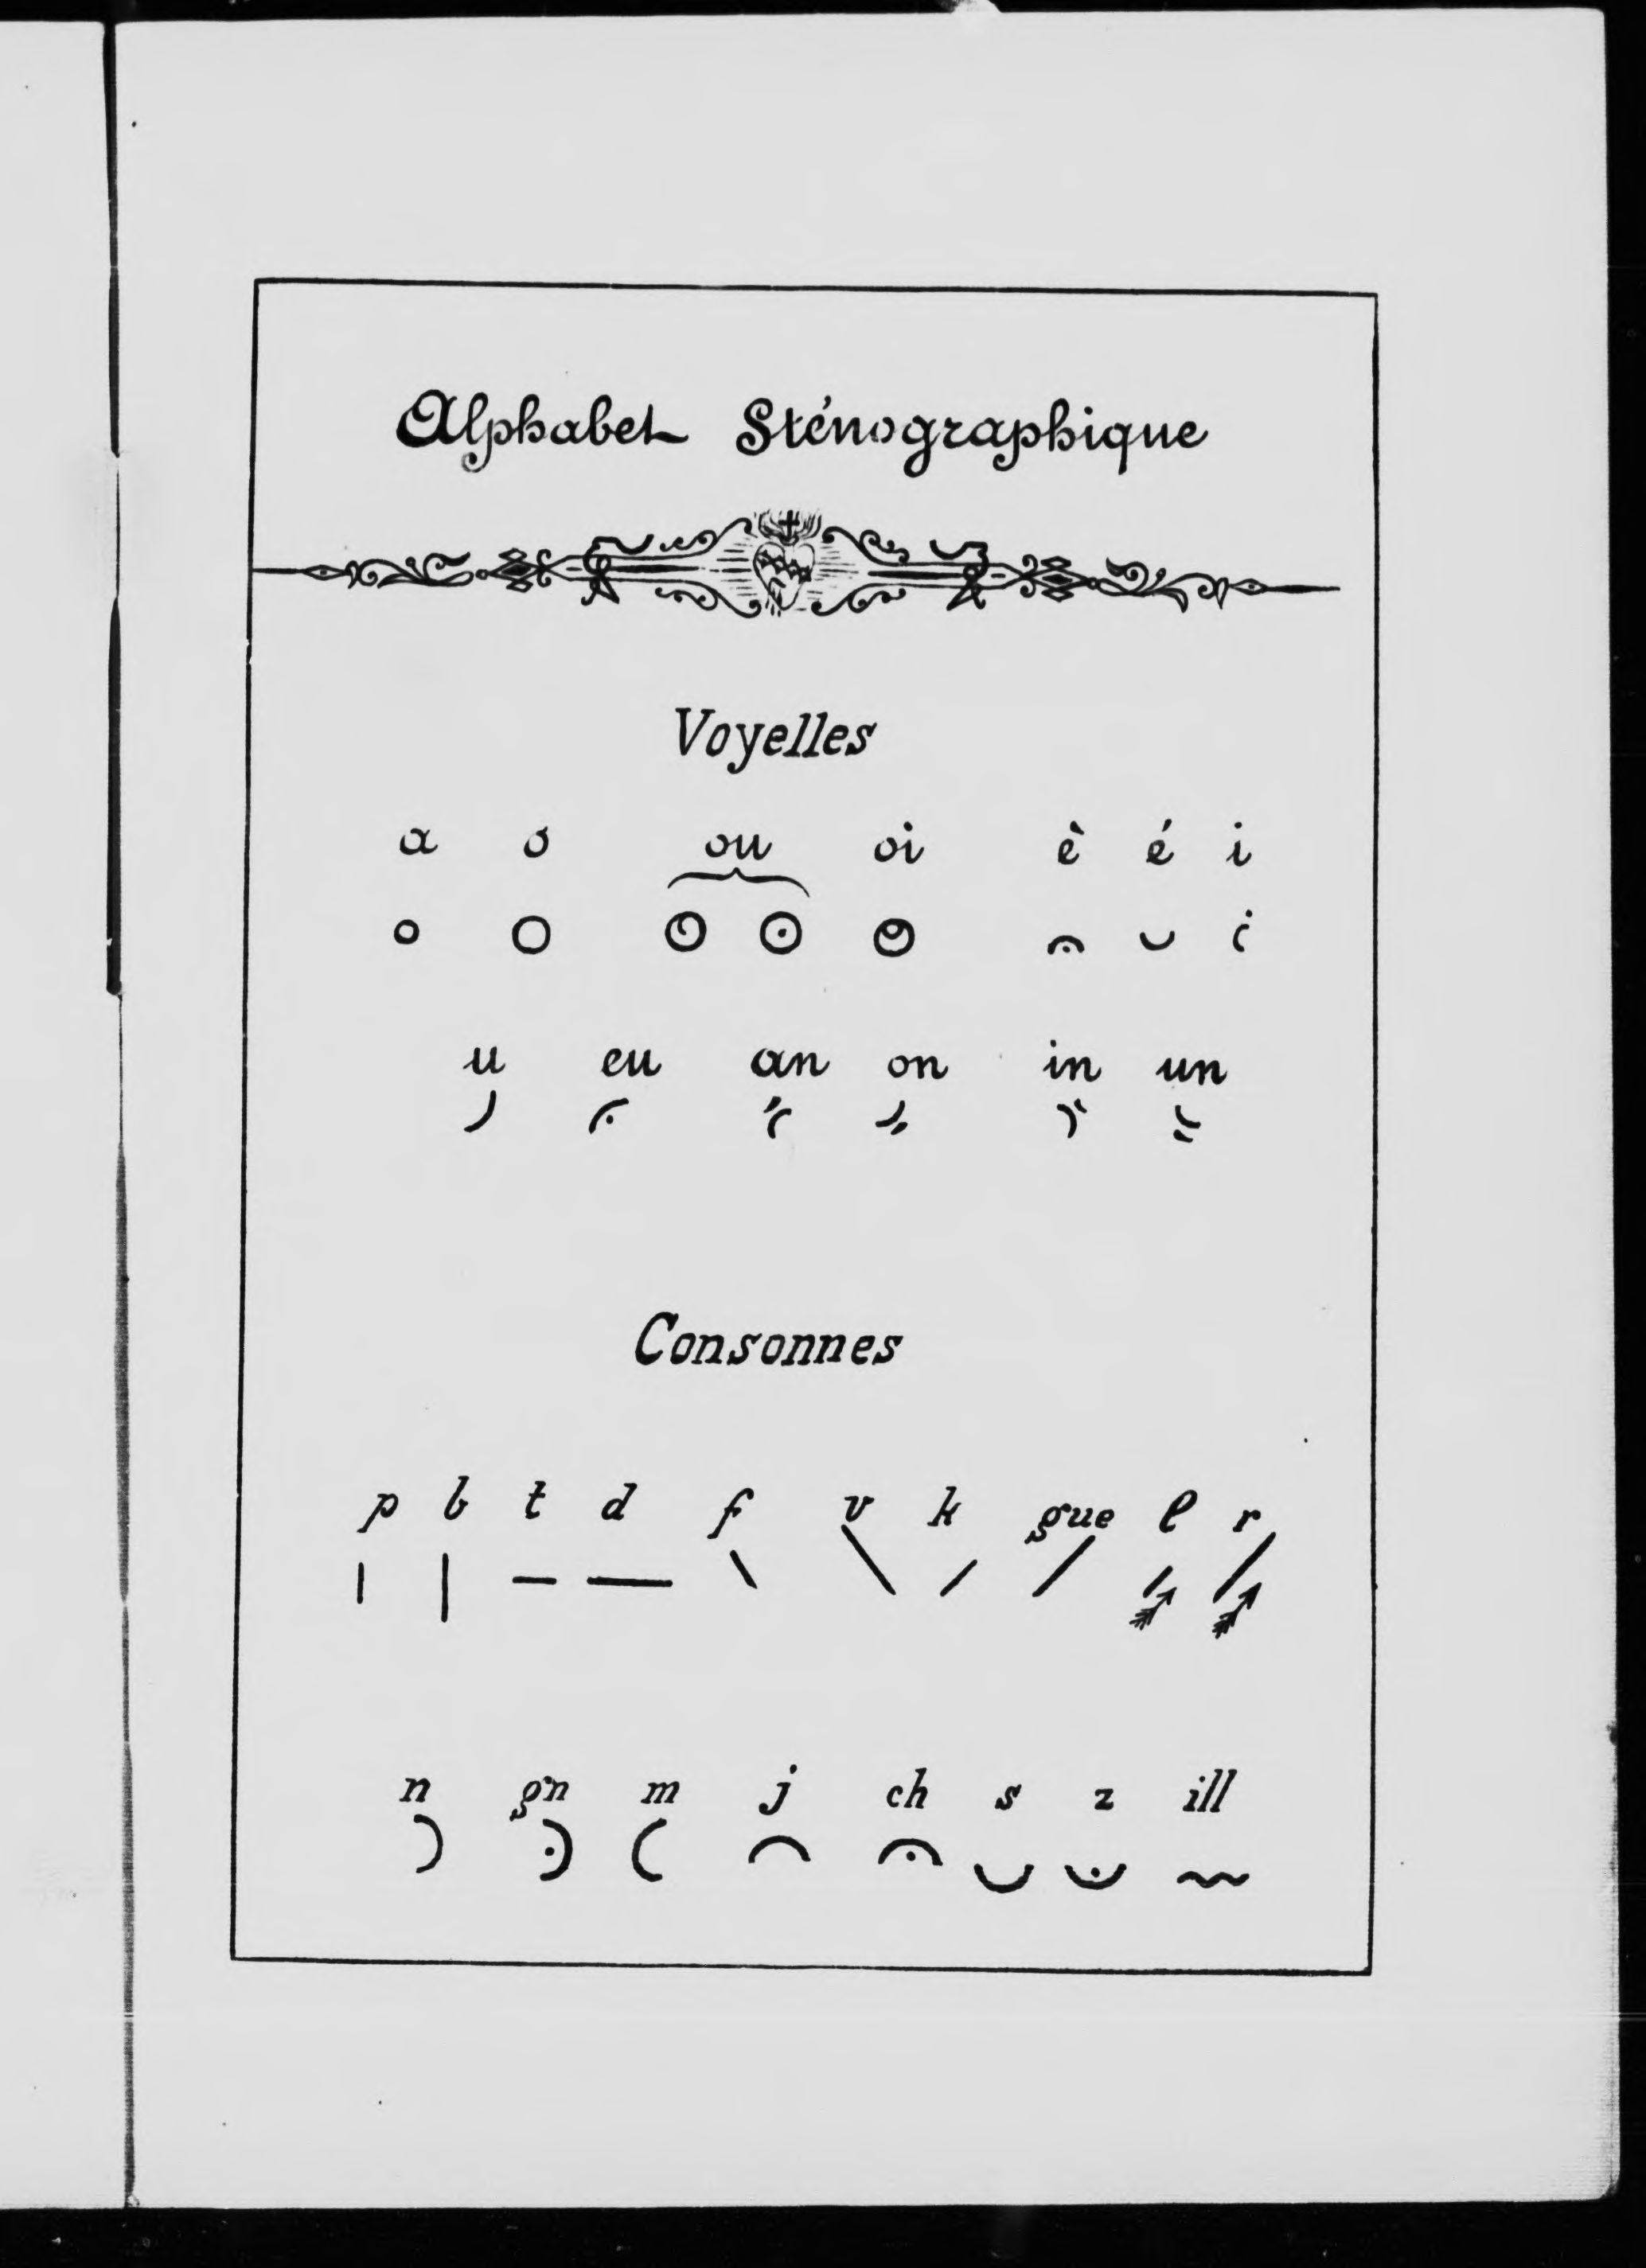 Alphabet Sténographique
Voyelles
a o ou oi è é i
u eu an on in un
Consonnes
p b t d f v k gue l r
n gn m j ch s z ill